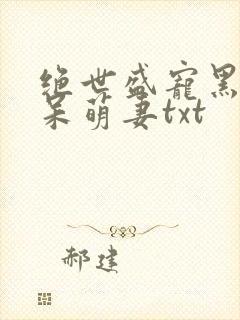 绝世盛宠黑
呆萌妻txt
郝建